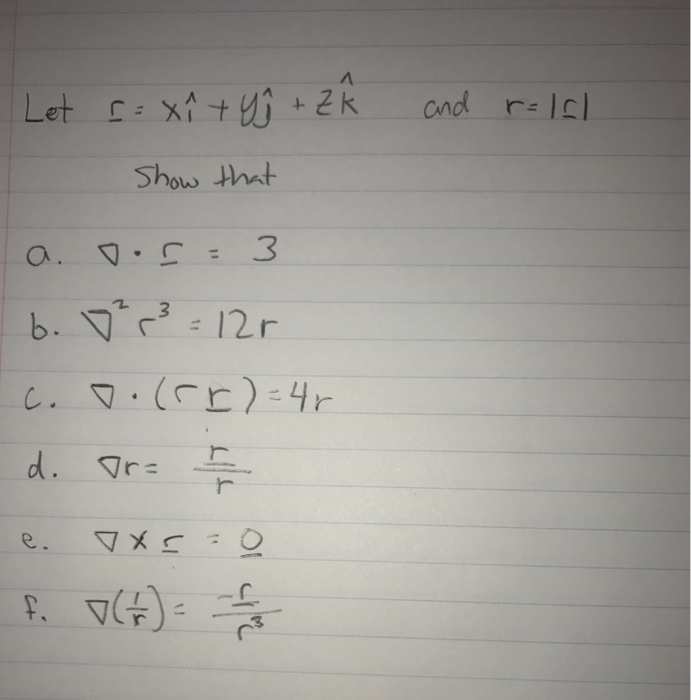 Let r̲ = xî + yĵ + zk̂ and r = |r̲|
Show that
a. ∇ · r̲ = 3
b. ∇² r³ = 12r
c. ∇ · (r r̲) = 4r
d. ∇r = r̲/r
e. ∇ × r̲ = 0̲
f. ∇(1/r) = -r̲/r³